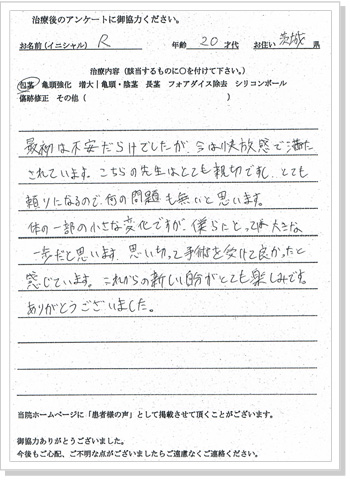 治療後のアンケートに御協力ください。
お名前（イニシャル） R 年齢 20才代 お住い 茨城 県
治療内容（該当するものに〇を付けて下さい。）
包茎 亀頭強化 増大｜亀頭・陰茎 長茎 フォアダイス除去 シリコンボール
傷跡修正 その他（ ）
最初は不安だらけでしたが、今は快放感で満た
されています。こちらの先生はとても親切ですし、とても
頼りになるので、何の問題も無いと思います。
体の一部の小さな変化ですが、僕らにとっては大きな
一歩だと思います。思い切って手術を受けて良かったと
感じています。これからの新しい自分がとても楽しみです。
ありがとうございました。
当院ホームページに「患者様の声」として掲載させて頂くことがございます。
御協力ありがとうございました。
今後もご心配、ご不明な点がございましたらご遠慮なくご連絡ください。